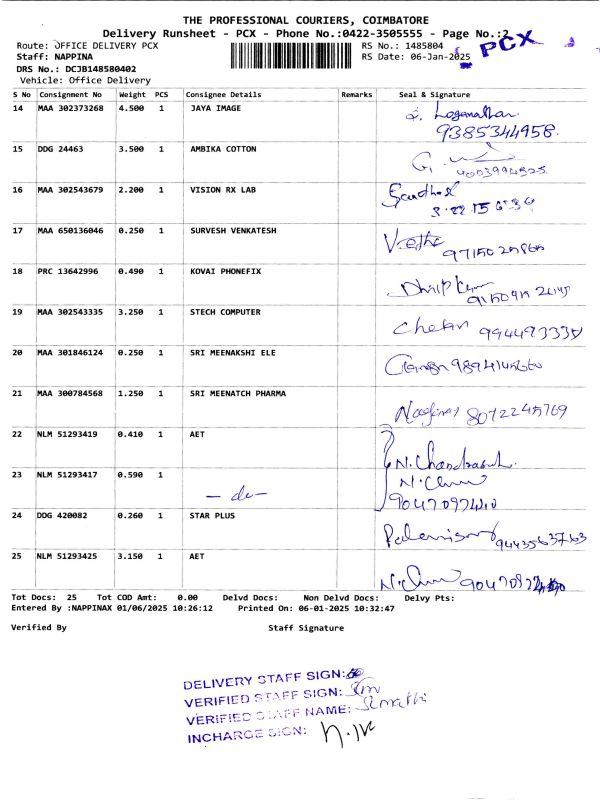 THE PROFESSIONAL COURIERS, COIMBATORE
Delivery Runsheet - PCX - Phone No.:0422-3505555 - Page No.:2
PCX
Route: OFFICE DELIVERY PCX RS No.: 1485804
Staff: NAPPINA RS Date: 06-Jan-2025
DRS No.: DCJB148580402
Vehicle: Office Delivery
S No Consignment No Weight PCS Consignee Details Remarks Seal & Signature
14 MAA 302373268 4.500 1 JAYA IMAGE Loganathan
9385344958
15 DDG 24463 3.500 1 AMBIKA COTTON
16 MAA 302543679 2.200 1 VISION RX LAB
17 MAA 650136046 0.250 1 SURVESH VENKATESH
18 PRC 13642996 0.490 1 KOVAI PHONEFIX
19 MAA 302543335 3.250 1 STECH COMPUTER Chetan
20 MAA 301846124 0.250 1 SRI MEENAKSHI ELE
21 MAA 300784568 1.250 1 SRI MEENATCH PHARMA
22 NLM 51293419 0.410 1 AET
23 NLM 51293417 0.590 1 - do -
24 DDG 420082 0.260 1 STAR PLUS
25 NLM 51293425 3.150 1 AET
Tot Docs: 25 Tot COD Amt: 0.00 Delvd Docs: Non Delvd Docs: Delvy Pts:
Entered By :NAPPINAX 01/06/2025 10:26:12 Printed On: 06-01-2025 10:32:47
Verified By Staff Signature
DELIVERY STAFF SIGN:
VERIFIED STAFF SIGN:
VERIFIED STAFF NAME:
INCHARGE SIGN: